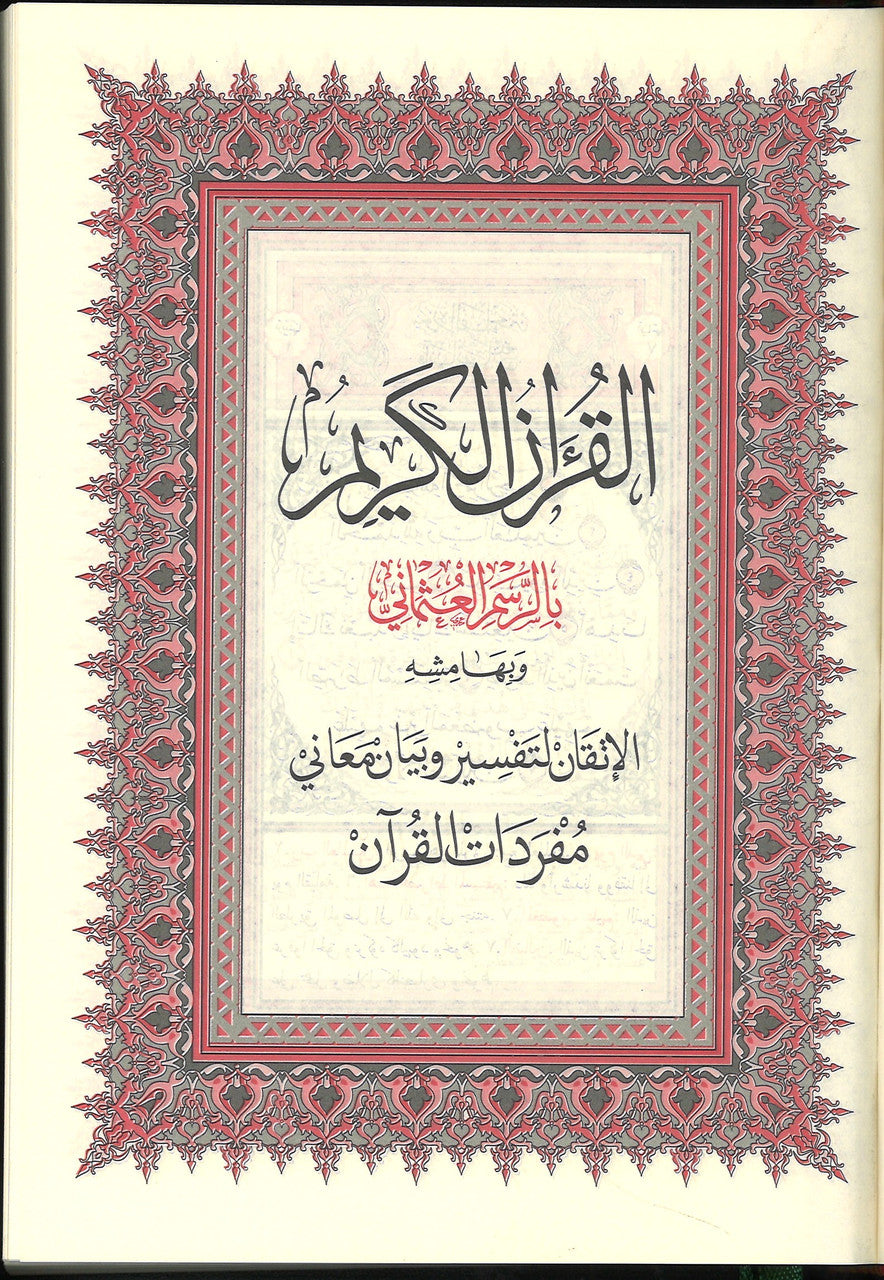 القُرْءَانُ الكَرِيمُ
بِالرَّسْمِ العُثْمَانِيِّ
وَبِهَامِشِهِ
الإِتْقَانْ لتَفْسِيرْ وبَيَانْ مَعَانيْ
مُفْرَدَاتْ القُرآنْ